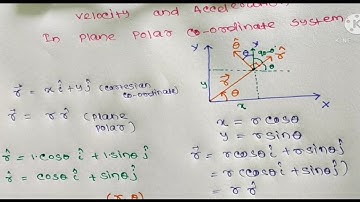 velocity and Acceleration
In Plane Polar co-ordinate system
r⃗ = xî + yĵ (cartesian co-ordinate)
r⃗ = r r̂ (plane polar)
r̂ = 1·cosθ î + 1·sinθ ĵ
r̂ = cosθ î + sinθ ĵ
(r, θ)
y
θ̂
y
90-θ
r̂
θ
r⃗
y
θ
x
x
x = r cosθ
y = r sinθ
r⃗ = r cosθ î + r sinθ ĵ
= r (cosθ î + sinθ ĵ)
= r r̂